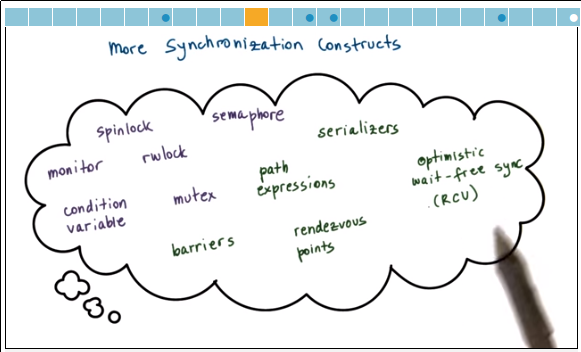 More Synchronization Constructs
spinlock
semaphore
serializers
monitor
rwlock
path
expressions
optimistic
wait-free sync
(RCU)
condition
variable
mutex
barriers
rendezvous
points